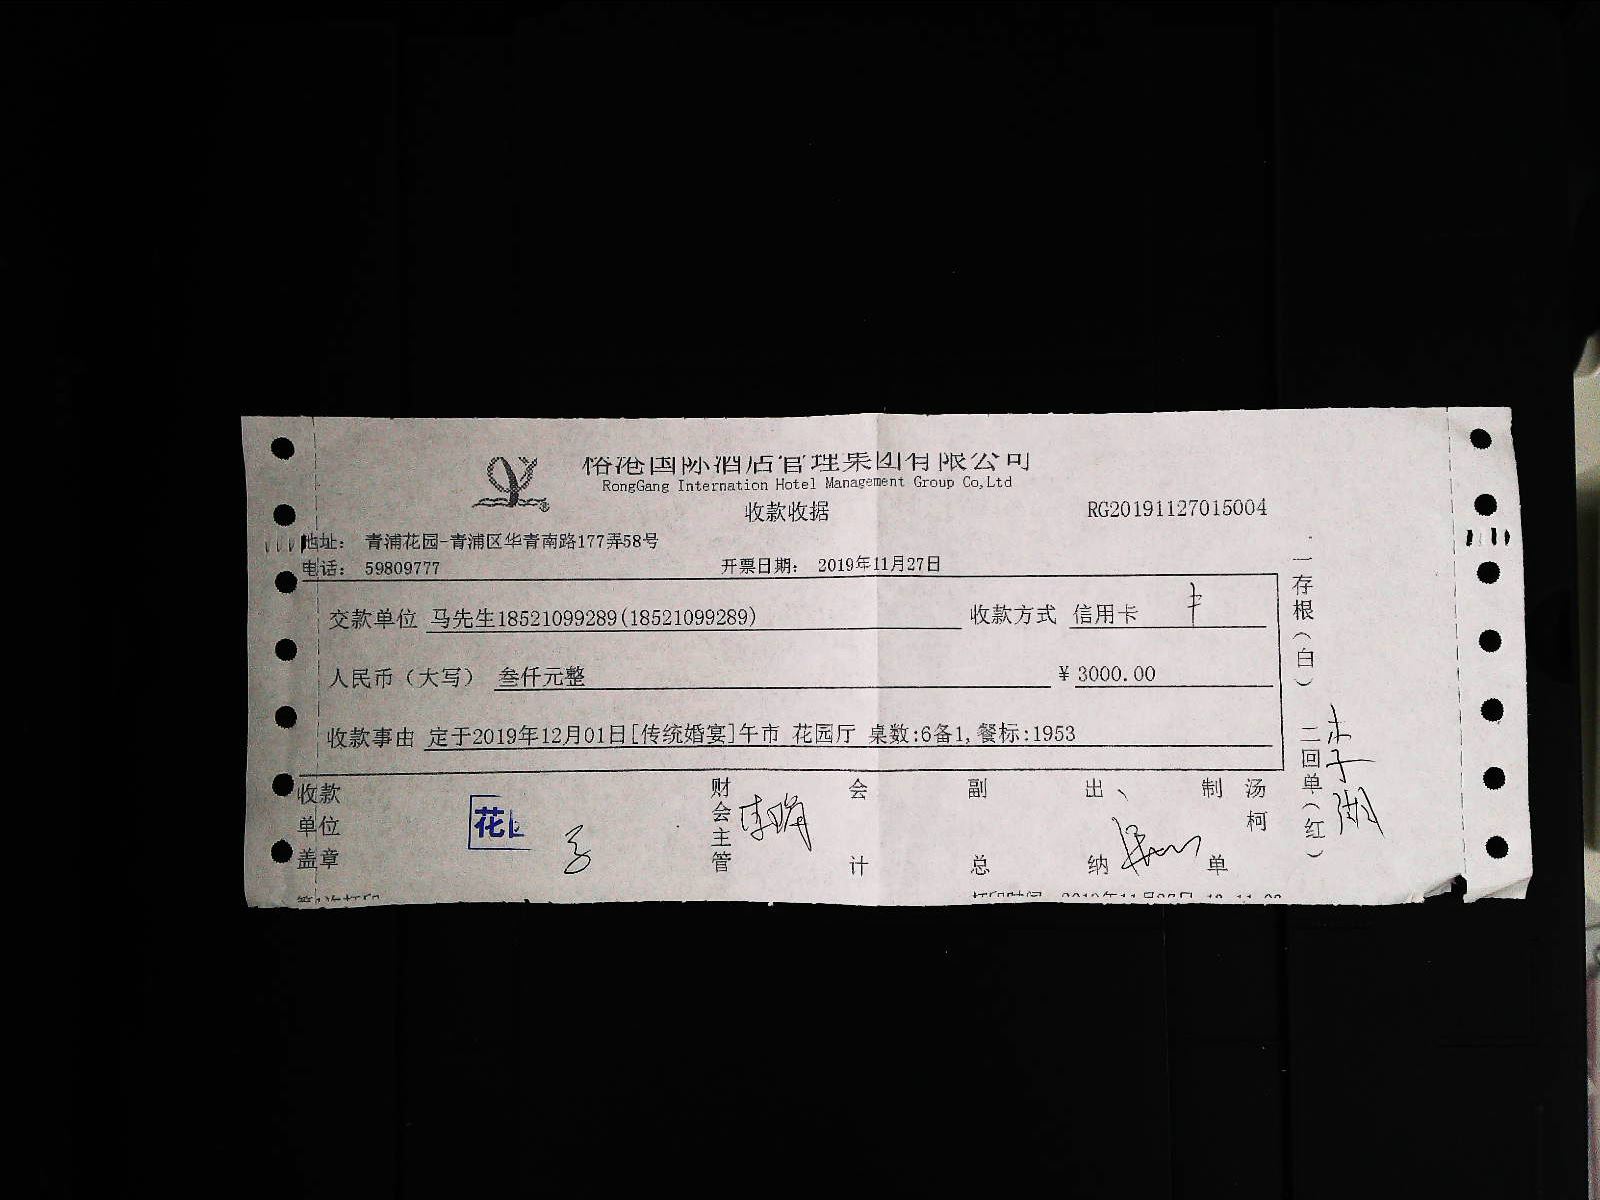 榕港国际酒店管理集团有限公司
RongGang Internation Hotel Management Group Co,Ltd
收款收据
RG20191127015004
地址： 青浦花园-青浦区华青南路177弄58号
电话： 59809777
开票日期： 2019年11月27日
交款单位 马先生18521099289(18521099289)
收款方式 信用卡
人民币（大写） 叁仟元整
¥ 3000.00
收款事由 定于2019年12月01日[传统婚宴]午市 花园厅 桌数:6备1,餐标:1953
收款单位盖章
财会主管
会计
副总
出纳
制单
汤柯
一存根（白）
二回单（红）